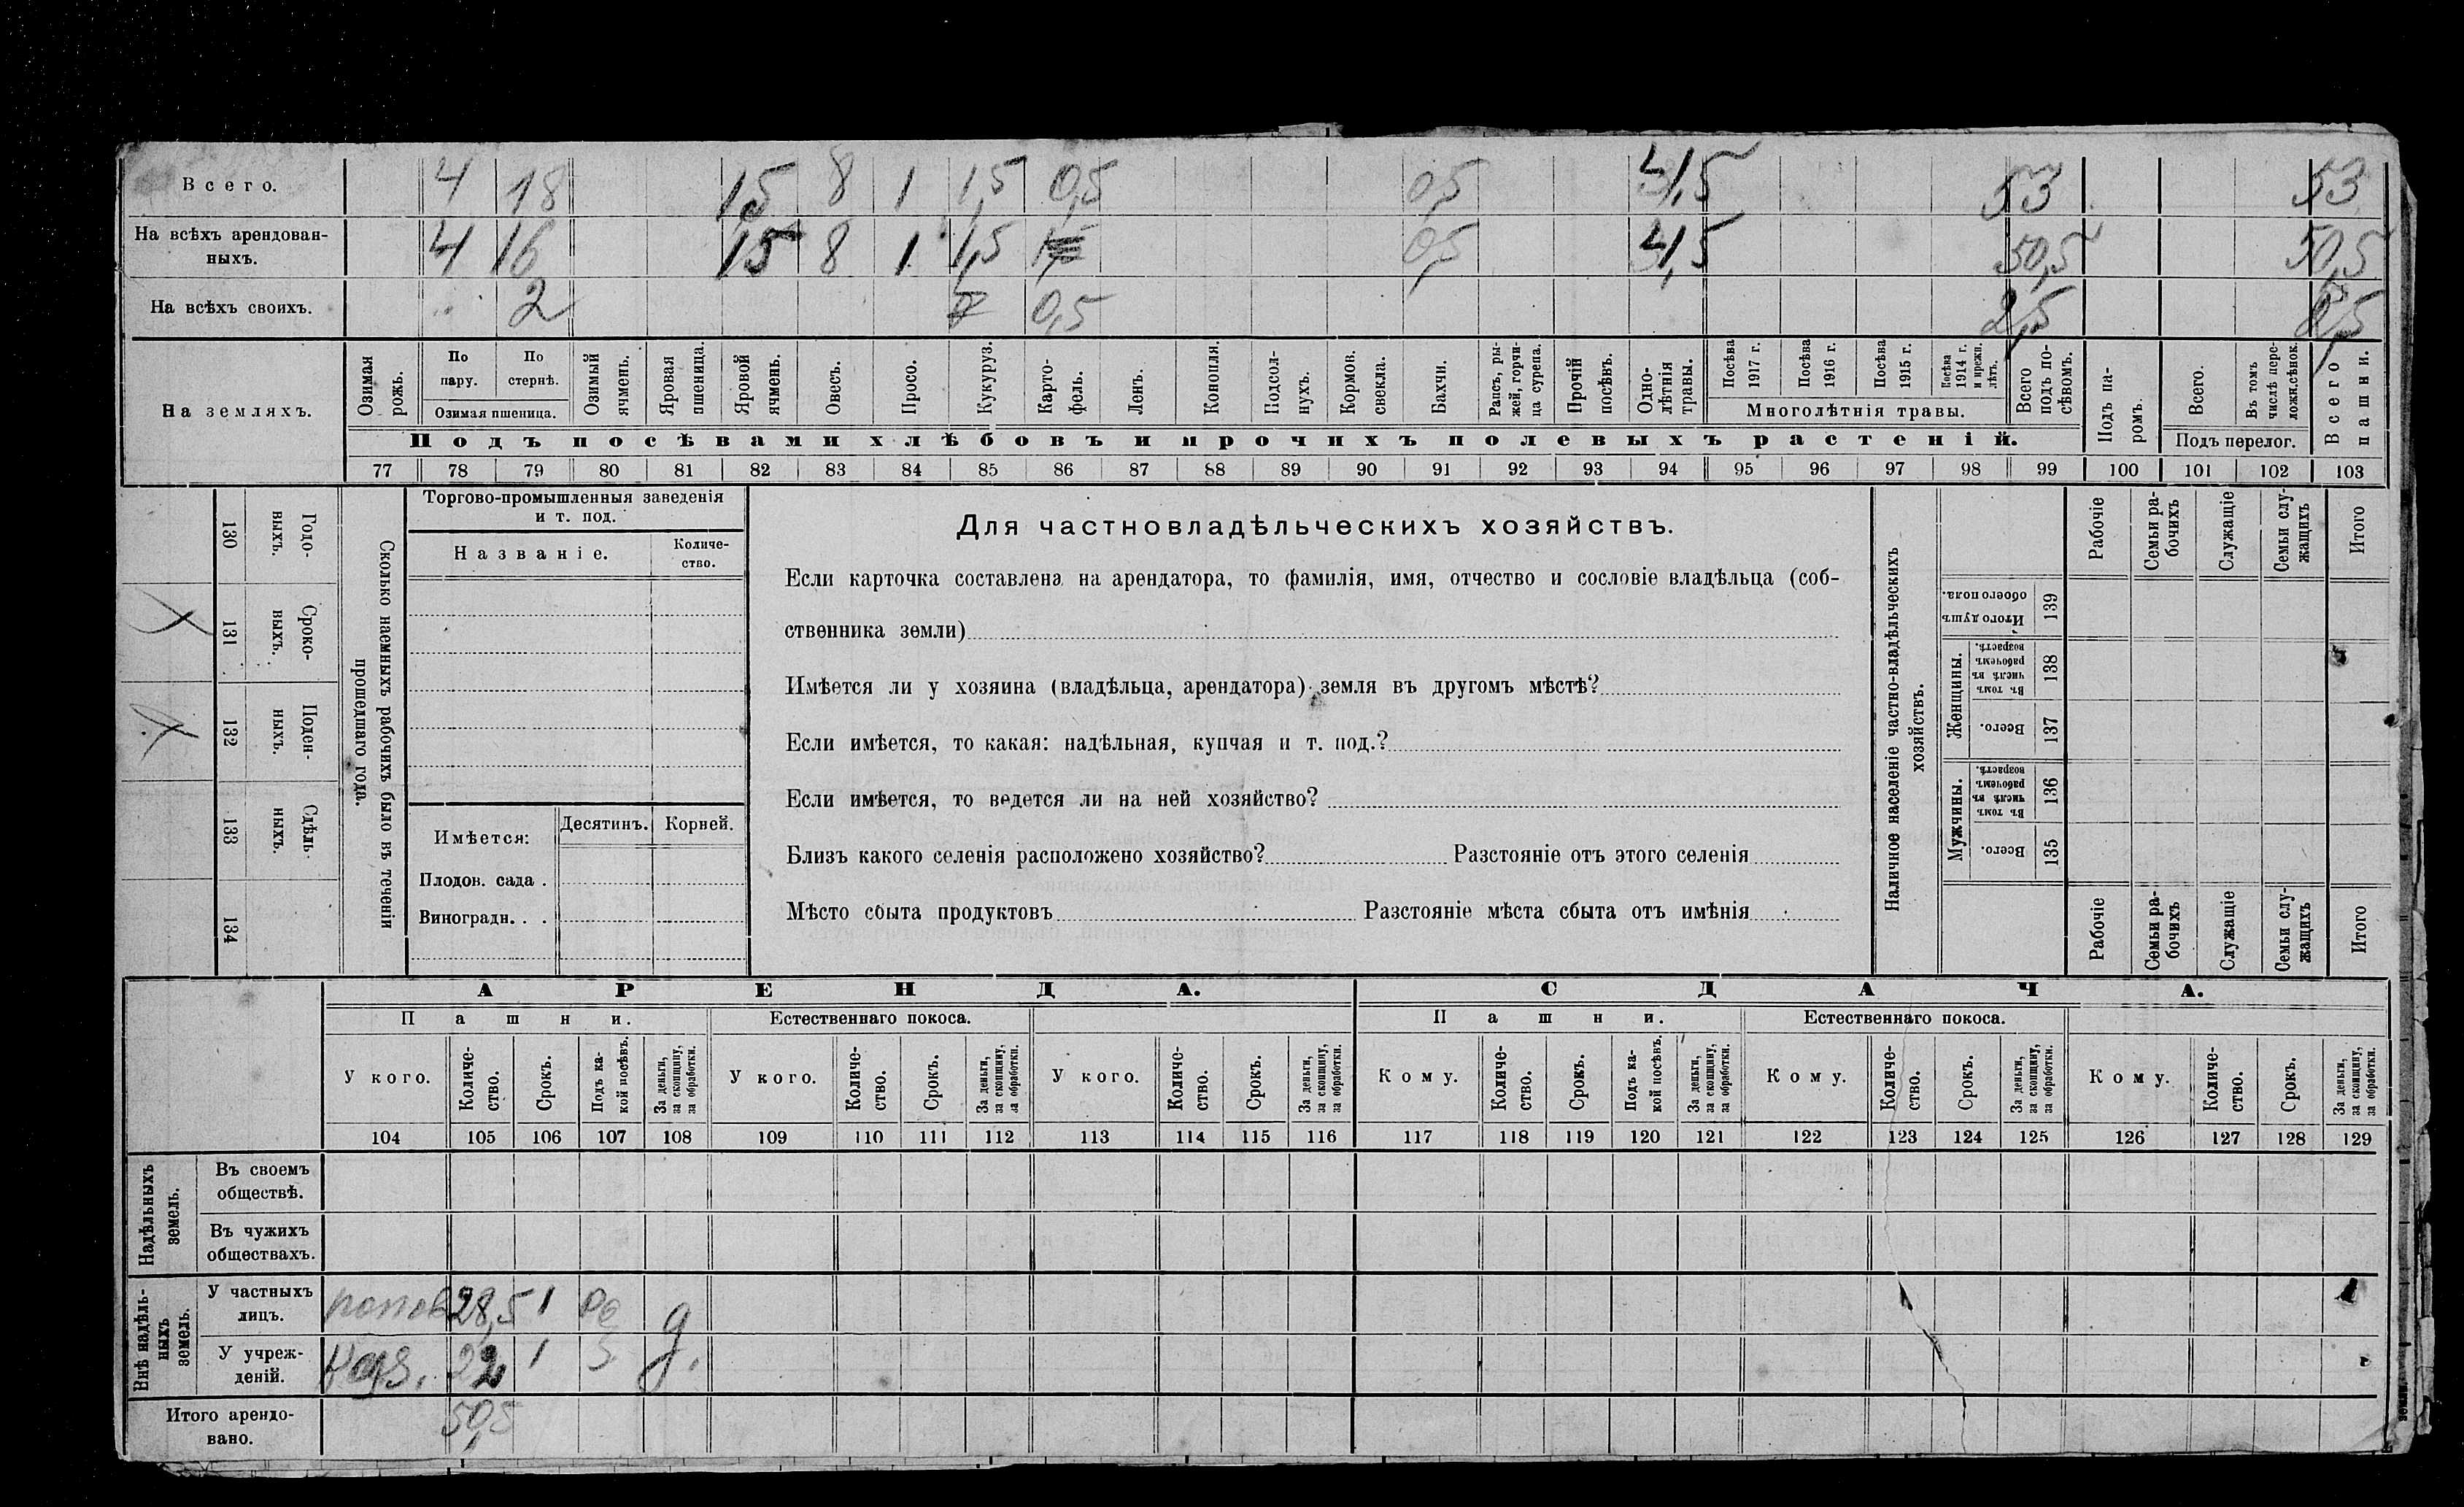 Всего. 4 18 15 8 1 1,5 0,5 0,5 4,5 53 53
На всѣхъ арендован-
ныхъ. 4 16 15 8 1 1,5 0,5 4,5 50,5 50,5
На всѣхъ своихъ. 2 0,5 2,5 2,5
На земляхъ.
Озимая рожь.
По пару.
По стернѣ.
Озимая пшеница.
Озимый ячмень.
Яровая пшеница.
Яровой ячмень.
Овесъ.
Просо.
Кукуруз.
Карто-
фель.
Ленъ.
Конопля.
Подсол-
нухъ.
Кормов. свекла.
Бахчи.
Рапсъ, ры-
жей, горчи-
ца сурепа.
Прочій посѣвъ.
Одно-
лѣтнія травы.
Посѣва 1917 г.
Посѣва 1916 г.
Посѣва 1915 г.
Посѣва 1914 г. и прежн. лѣтъ.
Многолѣтнія травы.
Всего подъ по-
сѣвомъ.
Подъ па-
ромъ.
Всего.
Въ томъ числѣ пере-
ложн.сѣнок.
Подъ перелог.
Всего пашни.
Подъ посѣвами хлѣбовъ и прочихъ полевыхъ растеній.
77 78 79 80 81 82 83 84 85 86 87 88 89 90 91 92 93 94 95 96 97 98 99 100 101 102 103
Годо-
выхъ.
130
Сроко-
выхъ.
131
Поден-
ныхъ.
132
Сдѣль-
ныхъ.
133
134
Сколько наемныхъ рабочихъ было въ теченіи
прошедшаго года.
Торгово-промышленныя заведенія
и т. под.
Названіе.
Количе-
ство.
Имѣется:
Десятинъ.
Корней.
Плодов. сада .
Виноградн. . .
Для частновладѣльческихъ хозяйствъ.
Если карточка составлена на арендатора, то фамилія, имя, отчество и сословіе владѣльца (соб-
ственника земли)
Имѣется ли у хозяина (владѣльца, арендатора) земля въ другомъ мѣстѣ?
Если имѣется, то какая: надѣльная, купчая и т. под.?
Если имѣется, то ведется ли на ней хозяйство?
Близъ какого селенія расположено хозяйство? Разстояніе отъ этого селенія
Мѣсто сбыта продуктовъ Разстояніе мѣста сбыта отъ имѣнія
Наличное населеніе частно-владѣльческихъ
хозяйствъ.
Рабочіе
Семьи ра-
бочихъ
Служащіе
Семьи слу-
жащихъ
Итого
Итого душъ обоего пола.
139
Женщины.
Въ томъ числѣ въ рабочемъ возрастѣ.
138
Всего.
137
Мужчины.
Въ томъ числѣ въ рабочемъ возрастѣ.
136
Всего.
135
Рабочіе
Семьи ра-
бочихъ
Служащіе
Семьи слу-
жащихъ
Итого
АРЕНДА. СДАЧА.
Пашни. Естественнаго покоса. Пашни. Естественнаго покоса.
У кого.
Количе-
ство.
Срокъ.
Подъ ка-
кой посѣвъ.
За деньги, за скопщину, за обработки.
У кого.
Количе-
ство.
Срокъ.
За деньги, за скопщину, за обработки.
У кого.
Количе-
ство.
Срокъ.
За деньги, за скопщину, за обработки.
Кому.
Количе-
ство.
Срокъ.
Подъ ка-
кой посѣвъ.
За деньги, за скопщину, за обработки.
Кому.
Количе-
ство.
Срокъ.
За деньги, за скопщину, за обработки.
Кому.
Количе-
ство.
Срокъ.
За деньги, за скопщину, за обработки.
104 105 106 107 108 109 110 111 112 113 114 115 116 117 118 119 120 121 122 123 124 125 126 127 128 129
Надѣльныхъ земель.
Въ своемъ
обществѣ.
Въ чужихъ
обществахъ.
Внѣ надѣль-
ныхъ земель.
У частныхъ
лицъ. 28,5 1 д
У учреж-
деній. Каз. 22 1 д.
Итого арендо-
вано. 50,5